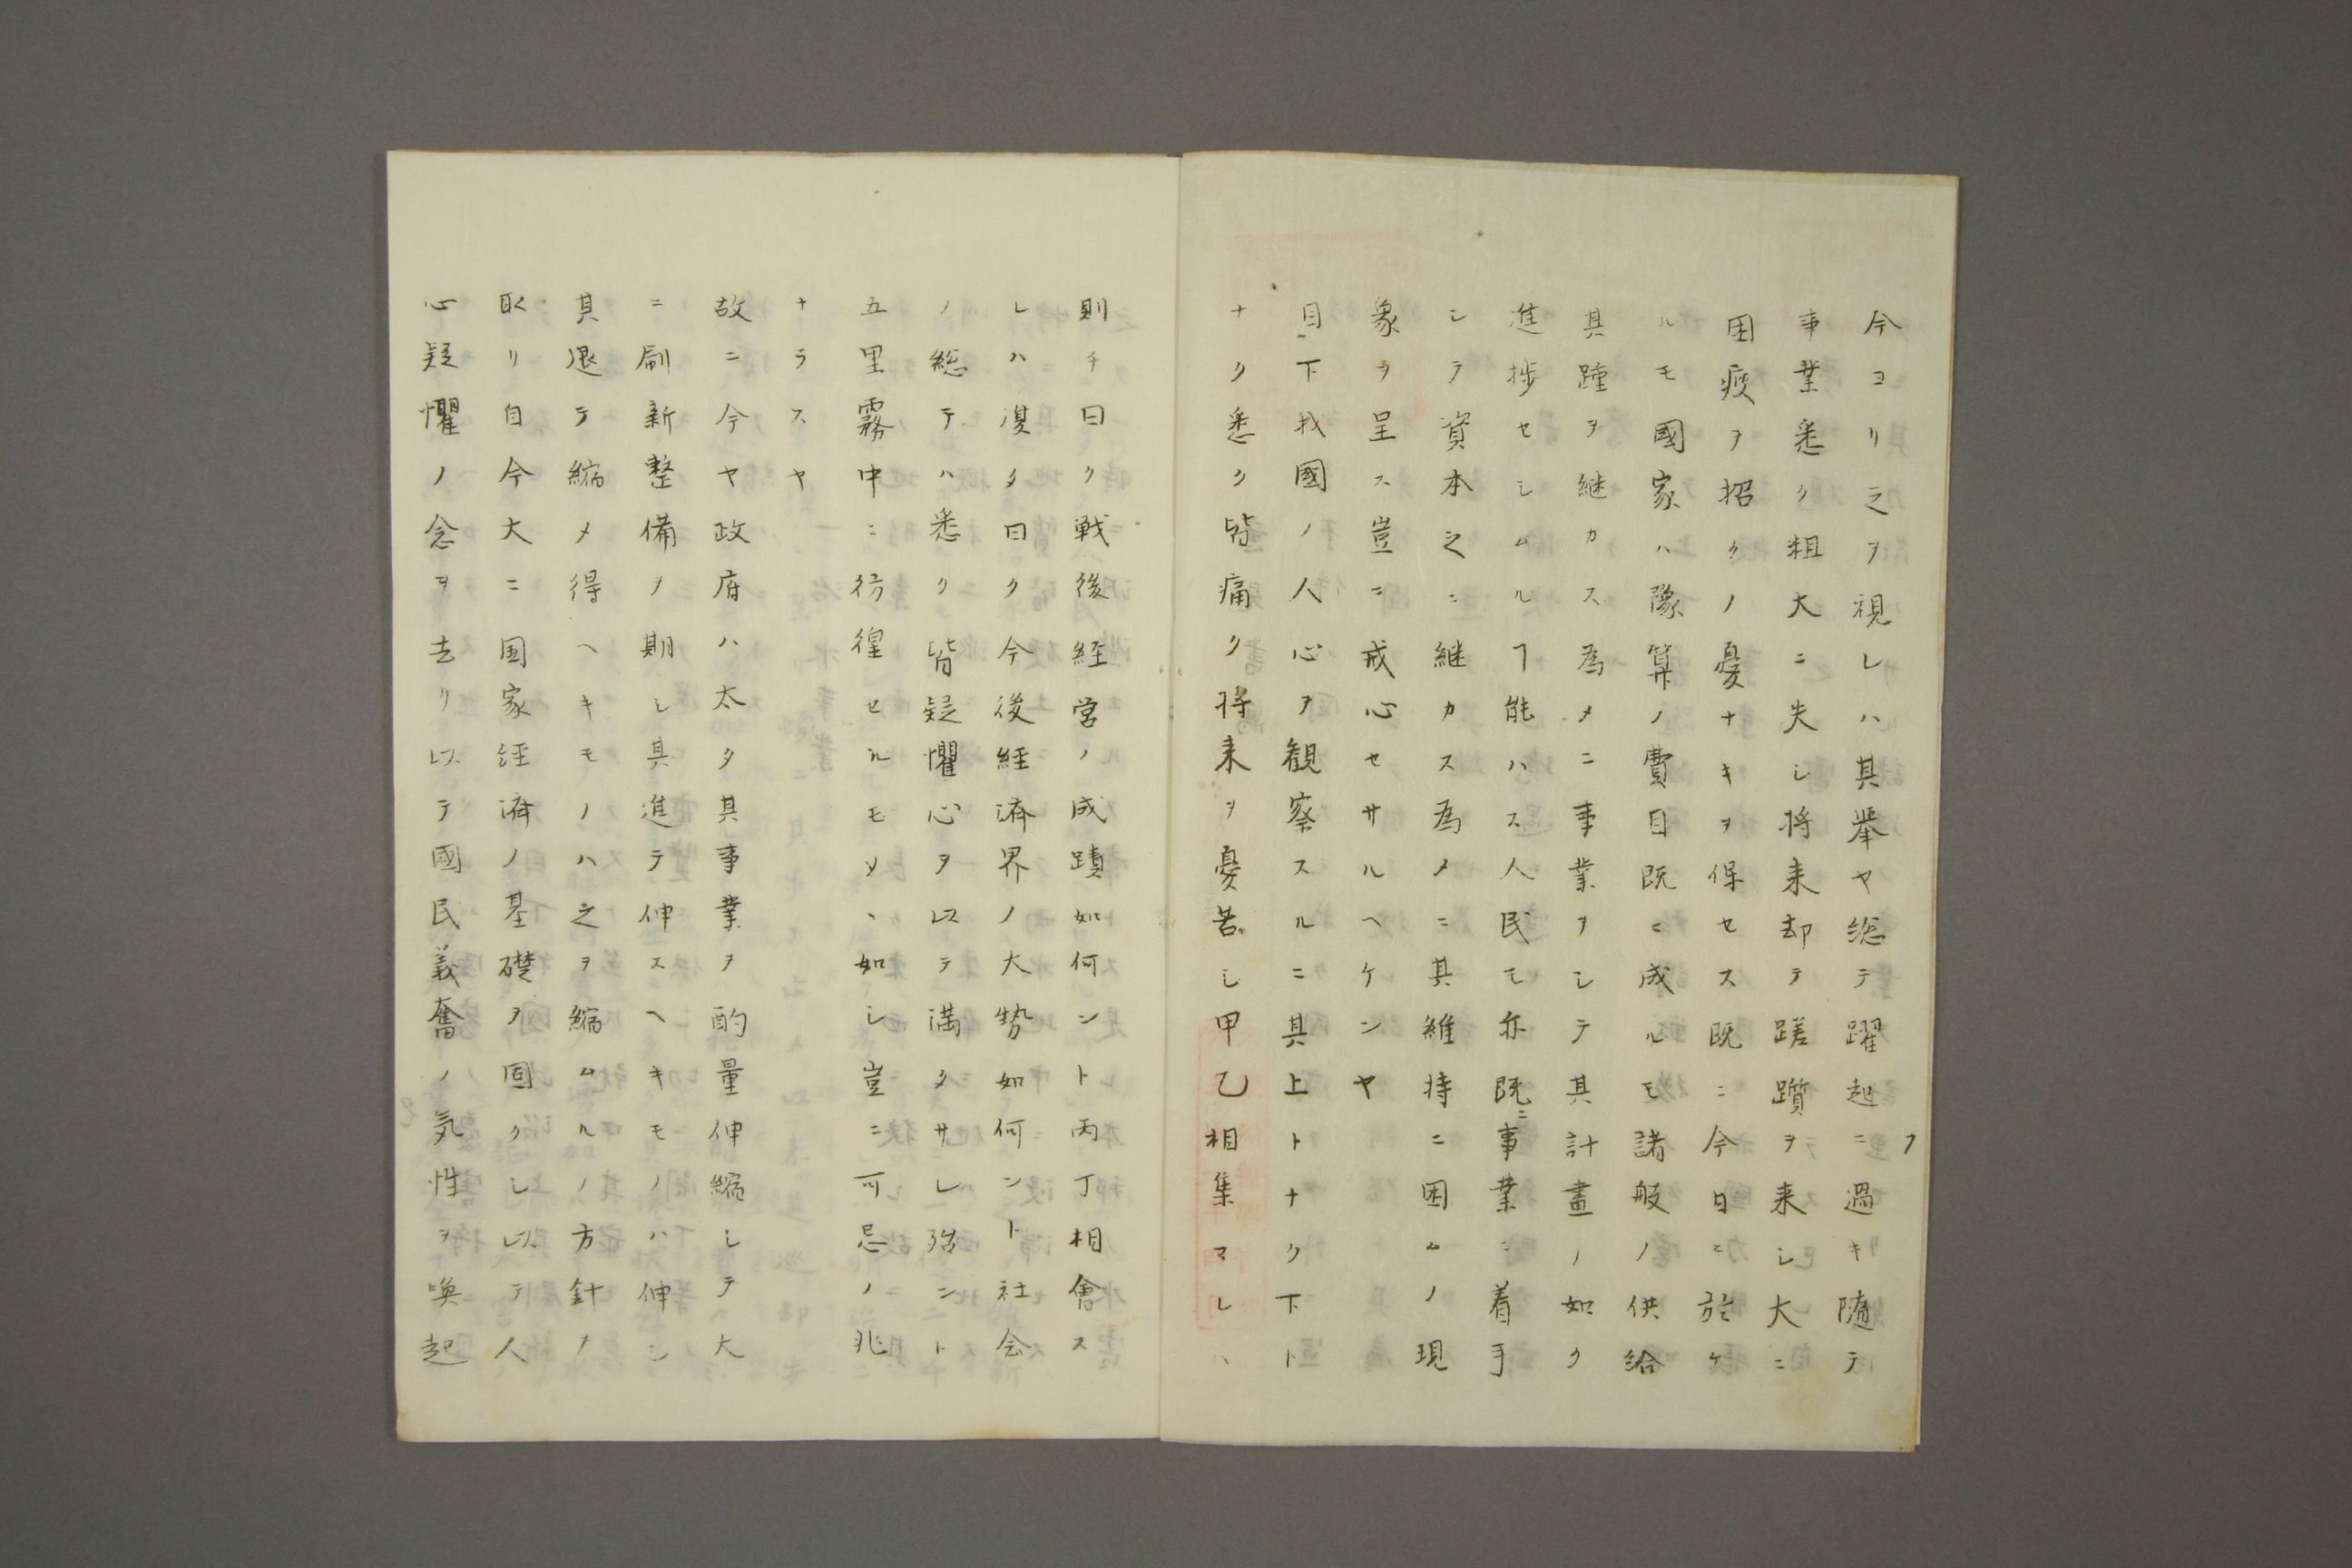 今ヨリ之ヲ視レハ其挙ヤ総テ躍起ニ過キ随テ
事業悉ク粗大ニ失シ将来却テ蹉躓ヲ来シ大ニ
困疲ヲ招クノ憂ナキヲ保セス既ニ今日ニ於ケ
ルモ國家ハ豫算ノ費目既ニ成ルモ諸般ノ供給
其踵ヲ継カス為メニ事業ヲシテ其計畫ノ如ク
進捗セシムルヿ能ハス人民モ亦既ニ事業ニ着手
シテ資本之ニ継カス為メニ其維持ニ困ムノ現
象ヲ呈ス豈ニ戒心セサルヘケンヤ
目下我國ノ人心ヲ観察スルニ其上トナク下ト
ナク悉ク皆痛ク将来ヲ憂苦シ甲乙相集マレハ
則チ曰ク戦後経営ノ成蹟如何ント丙丁相會ス
レハ復タ曰ク今後経済界ノ大勢如何ント社会
ノ総テハ悉ク皆疑懼心ヲ以テ満タサレ殆ント
五里霧中ニ彷徨セルモノヽ如シ豈ニ可忌ノ兆
ナラスヤ
故ニ今ヤ政府ハ太タ其事業ヲ酌量伸縮シテ大
ニ刷新整備ヲ期シ其進テ伸スヘキモノハ伸シ
其退テ縮メ得ヘキモノハ之ヲ縮ムルノ方針ヲ
取リ自今大ニ国家経済ノ基礎ヲ固クシ以テ人
心疑懼ノ念ヲ去リ以テ國民義奮ノ気性ヲ喚起